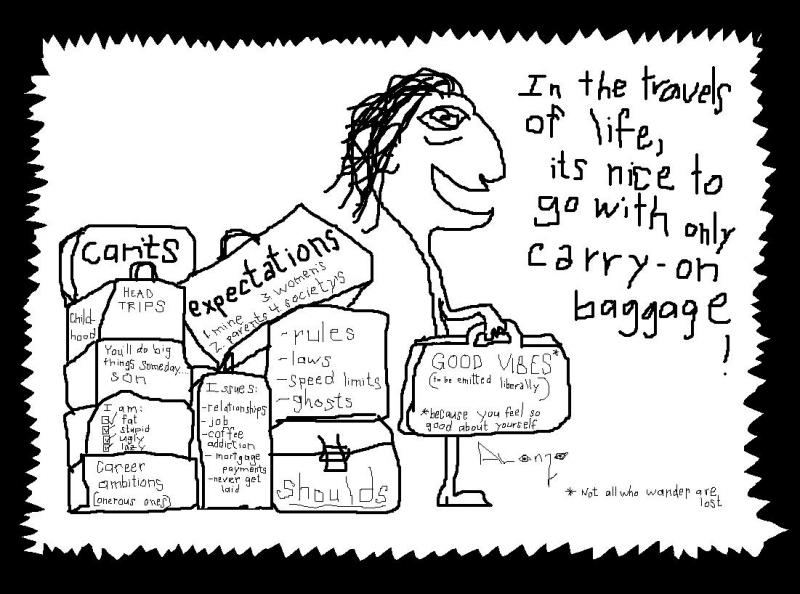 In the travels
of life,
its nice to
go with only
carry-on
baggage
!
can'ts
expectations
1. mine 3. women's
2. parents 4 society's
HEAD
TRIPS
Child-
hood
You'll do big
things someday...
son
- rules
- laws
- speed limits
- ghosts
GOOD VIBES*
(to be emitted liberally)
*because you feel so
good about yourself
Issues:
- relationships
- job
- coffee
addiction
- mortgage
payments
- never get
laid
I am:
fat
stupid
ugly
lazy
Career
ambitions
(onerous ones)
shoulds
* Not all who wander are
lost